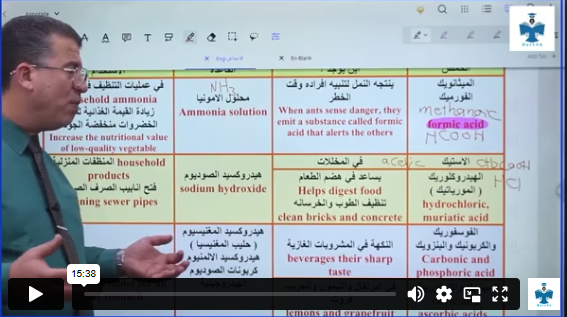 En-Blank
أين يوجد ؟
في عمليات التنظيف في
household ammonia
زيادة القيمة الغذائية
الخضروات منخفضة الجو
Increase the nutritional value
of low-quality vegetable
NH3
محلول الامونيا
Ammonia solution
ينتجه النمل لتنبيه افراده وقت
الخطر
When ants sense danger, they
emit a substance called formic
acid that alerts the others
الميثانويك
الفورميك
methanoic
formic acid
HCOOH
المنظفات المنزلية household
products
فتح انابيب الصرف
sewer pipes
هيدروكسيد الصوديوم
sodium hydroxide
في المخللات
يساعد في هضم الطعام
Helps digest food
تنظيف الطوب والخرسانه
clean bricks and concrete
الاستيك
acetic
HCl
الهيدروكلوريك
( المورياتيك )
hydrochloric,
muriatic acid
هيدروكسيد المغنيسيوم
( حليب المغنيسيا )
هيدروكسيد الالمنيوم
كربونات الصوديوم
النكهة في المشروبات الغازية
beverages their sharp
taste
lemons and grapefruit
الفوسفوريك
والكربونيك والبنزويك
Carbonic and
phosphoric acid
ascorbic acids
15:38